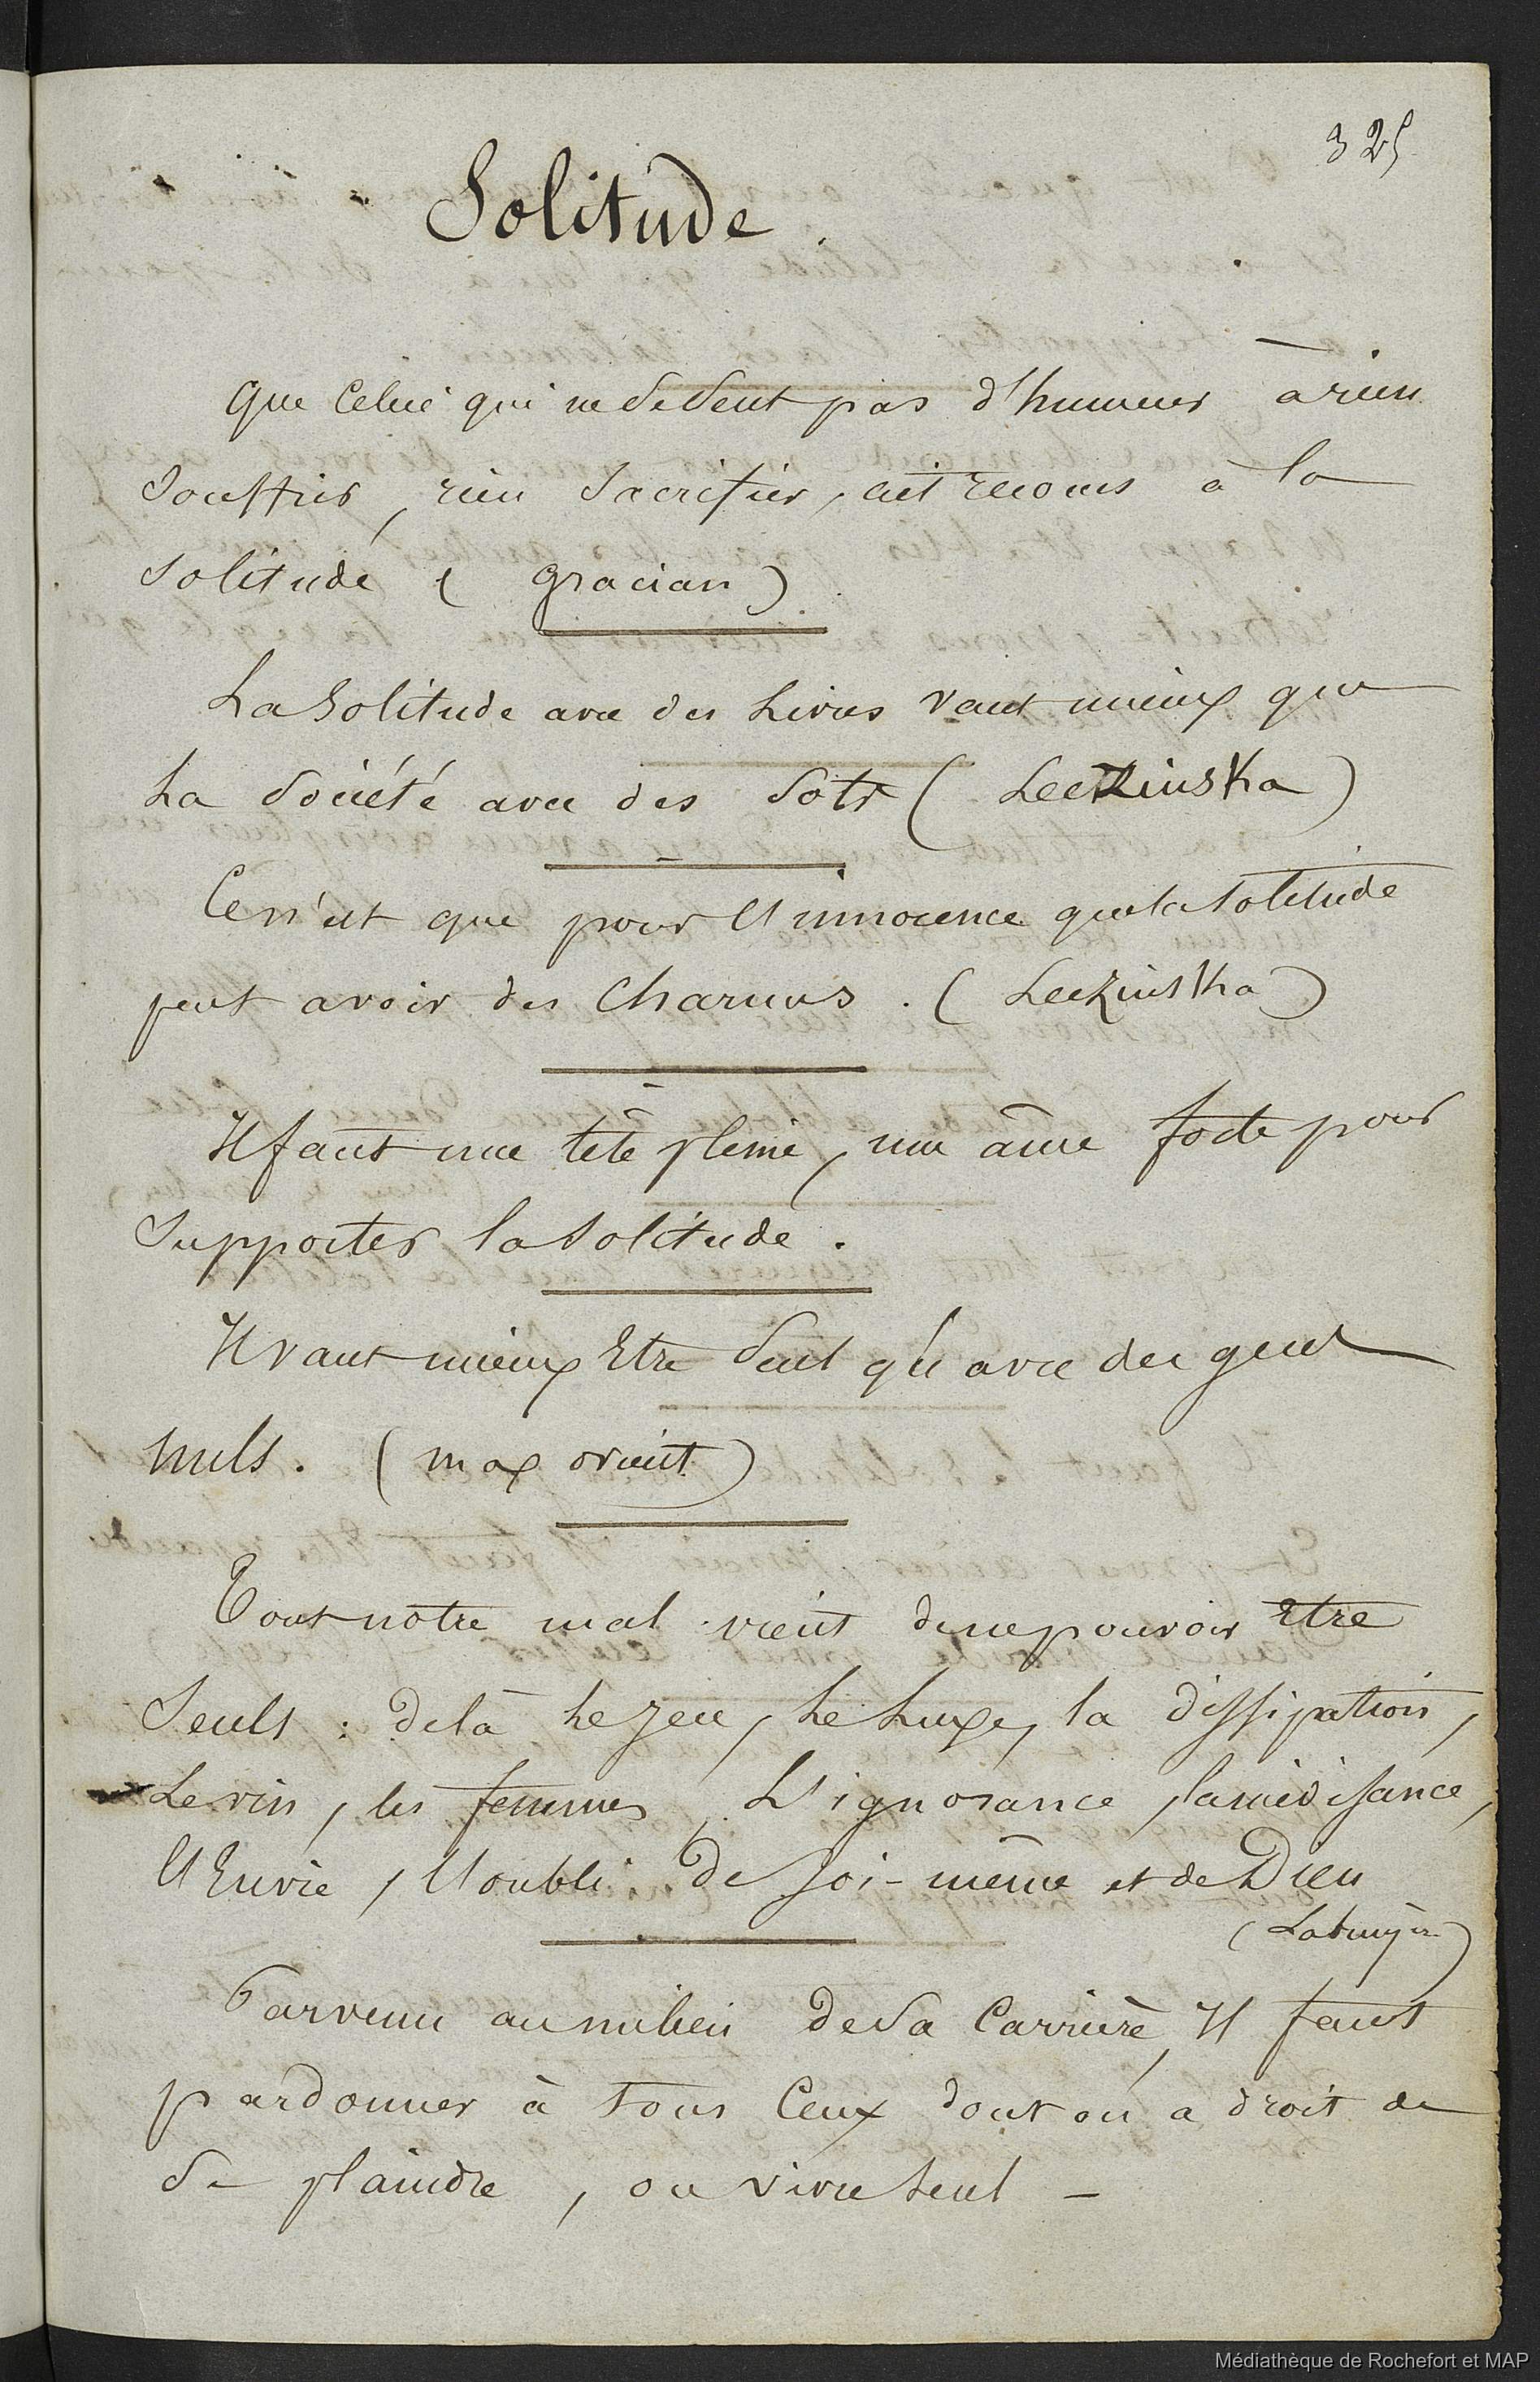 325
Solitude
Que celui qui ne se sent pas d'humeur à rien
souffrir, rien sacrifier, ait recours à la
solitude (gracian)
La Solitude avec des Livres vaut mieux que
La Société avec des Sots (Leckzinska)
Ce n'est que pour l'innocence que la solitude
peut avoir des Charmes. (Leckzinska)
Il faut une tête pleine, une âme forte pour
Supporter la Solitude.
Il vaut mieux Etre Seul qu'avec des gens
nuls. (max orient)
Tout notre mal vient de ne pouvoir Etre
Seuls : de là Le jeu, Le Luxe, la dissipation,
Le vin, les femmes, L'ignorance, la médisance,
L'Envie, l'oubli de soi-même et de Dieu
(Labruyère)
Parvenu au milieu de sa Carrière, Il faut
pardonner à tous Ceux dont on a droit de
se plaindre, ou vivre seul –
Médiathèque de Rochefort et MAP